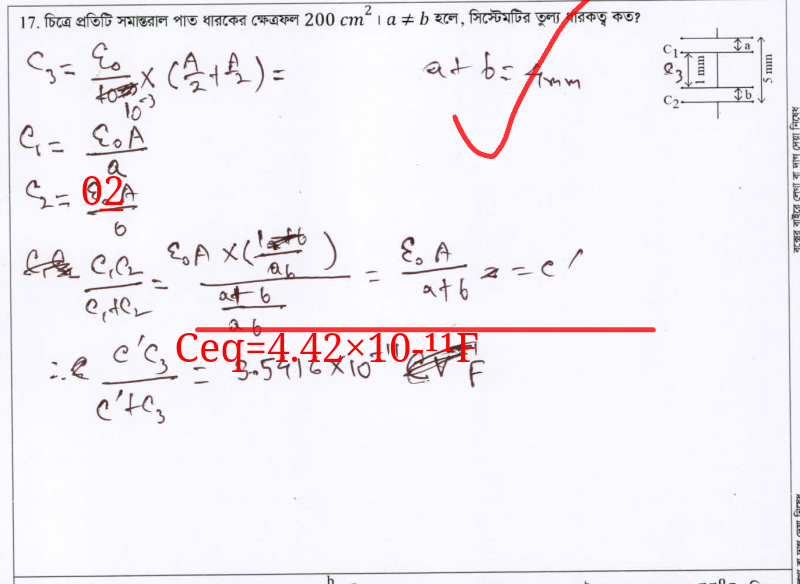 17. চিত্রে প্রতিটি সমান্তরাল পাত ধারকের ক্ষেত্রফল 200 cm² । a ≠ b হলে, সিস্টেমটির তুল্য ধারকত্ব কত?
C₁ a
1 mm 5 mm
C₂ b
C₃
C₃ = ε₀ / 10⁻³ × (A/2 + A/2) =
a + b = 4 mm
C₁ = ε₀A / a
C₂ = ε₀A / b
02
C₁C₂ / (C₁+C₂) = ε₀A × (1 / ab) / ((a+b) / ab) = ε₀A / (a+b) = C′
Ceq=4.42×10-¹¹F
∴ C′C₃ / (C′+C₃) = 3.5416 × 10⁻¹¹ F
বক্সের বাইরে লেখা বা দাগ দেয়া নিষেধ